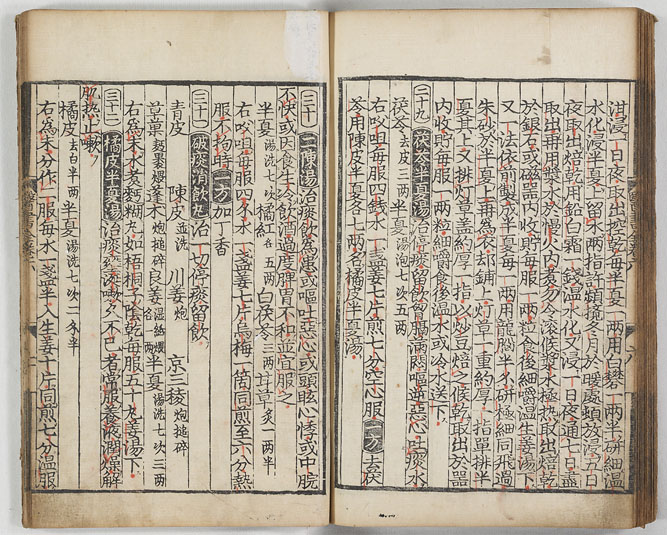 泔浸一日夜取出控乾每半夏一兩用白礬一兩半研細溫
水化浸半夏上留水兩指許頻攪冬月於暖處頓放浸五日
夜取出焙乾用鉛白霜一錢溫水化又浸一日夜通七日盡
取出再用漿水於慢火內煮勿令滾候漿水極熱取出焙乾
於銀石或磁器內收貯每服一兩粒食後細嚼溫生薑湯下
又一法依前製成半夏每一兩用龍腦半分研極細同飛過
朱砂於半夏上再為衣却鋪一灯草一重約厚一指單排半
夏其上又排灯草盖約厚一指以炒豆焙之候乾取出於器
內收貯每服一兩粒細嚼食後溫水或冷水送下
二十九 茯苓半夏湯治停痰留飲胷膈滿悶嘔逆惡心吐痰水
茯苓去皮三兩半夏湯泡七次五兩
右㕮咀每服四錢水一盞薑七片煎七分空心服一方去茯
苓用陳皮半夏各七兩名橘皮半夏湯
三十 二陳湯治痰飲為患或嘔吐惡心或頭眩心悸或中脘
不快或因食生冷飲酒過度脾胃不和並宜服之
半夏湯洗七次橘紅各五兩白茯苓三兩甘草炙一兩半
右㕮咀每服四錢水一盞薑七片烏梅一箇同煎至六分熱
服不拘時一方加丁香
三十一 破痰消飲丸治一切停痰留飲
青皮 陳皮並洗 川薑炮 京三稜炮搥碎
草菓麪裹煨蓬朮炮搥碎良薑濕紙煨各一兩半夏湯洗七次三兩
右為末水煮麪糊丸如梧桐子陰乾每服五十丸薑湯下
三十二 橘皮半夏湯治痰壅涎嗽久不已者常服養液潤燥解
肌熱止嗽
橘皮去白半兩半夏湯洗七次二分半
右為末分作二服每水一盞半入生薑十片同煎七分溫服